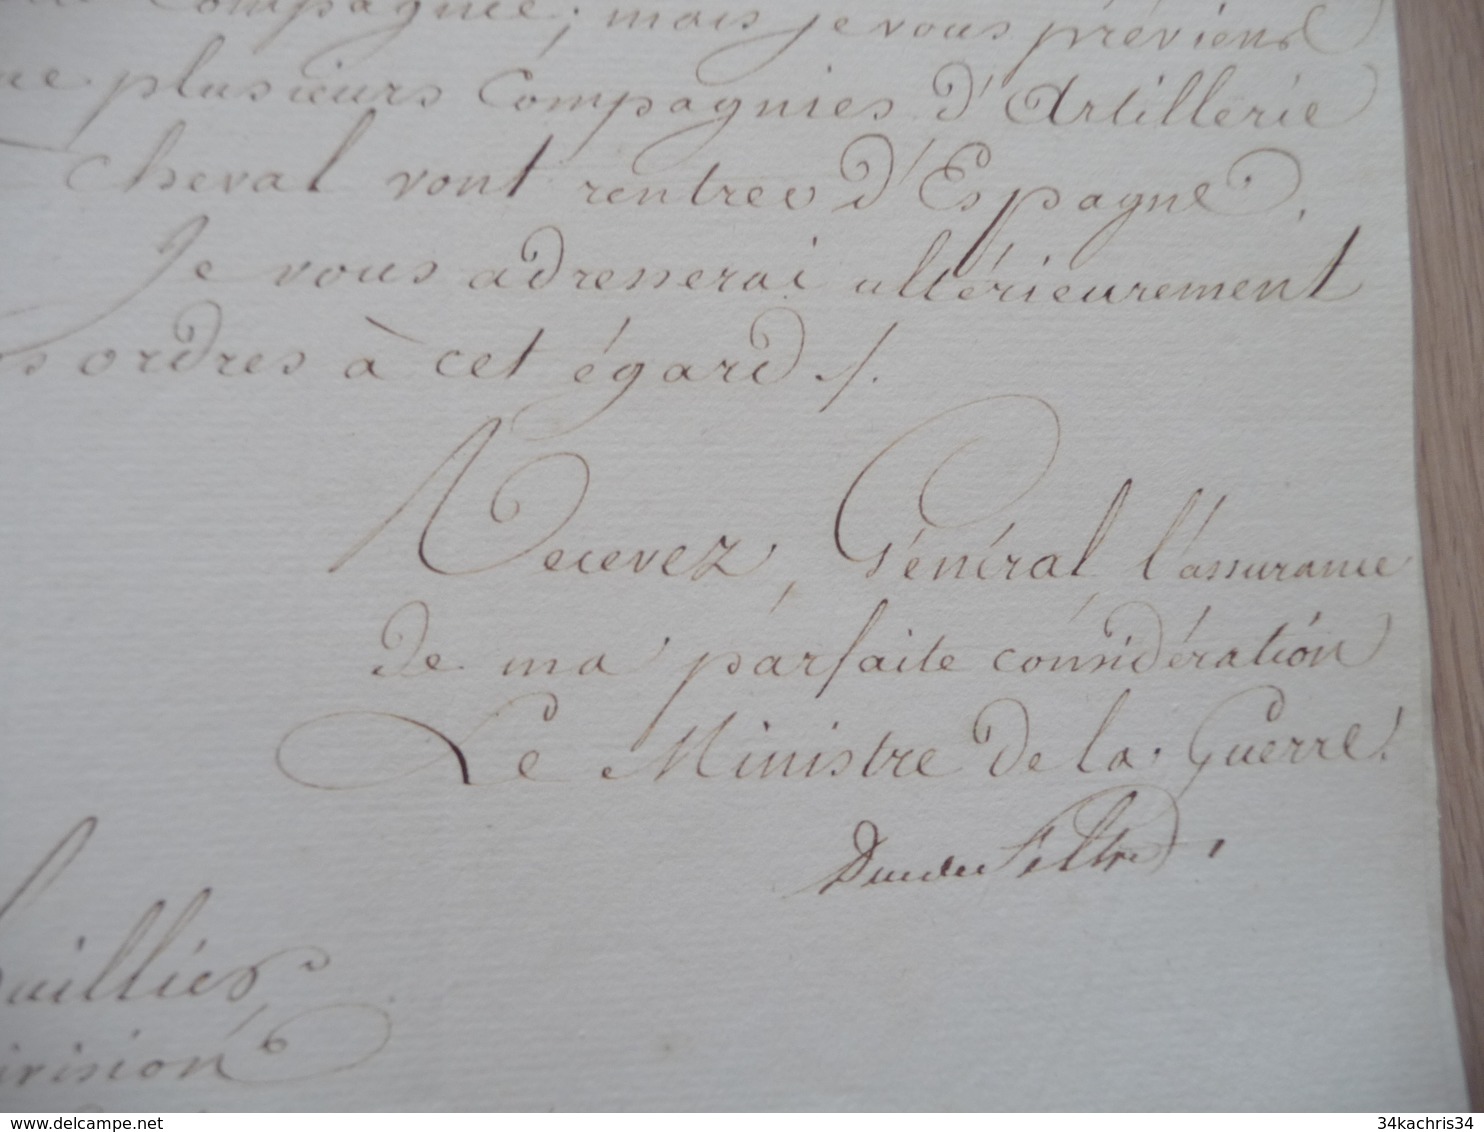 Compagnie; mais je vous préviens
que plusieurs Compagnies d'Artillerie
à Cheval vont rentrer d'Espagne.
Je vous adresserai ultérieurement
ordres à cet égard ./.
Recevez, Général, l'assurance
de ma parfaite considération
Le Ministre de la Guerre.
Duc de Feltre.
uillier,
ivision
delcampe.net
34kachris34